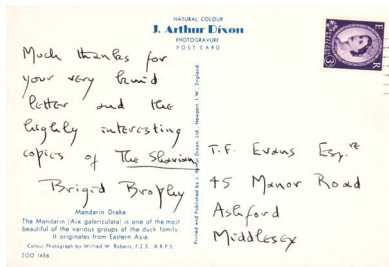 NATURAL COLOUR
J. Arthur Dixon
PHOTOGRAVURE
POST CARD
Much thanks for
your very kind
letter and the
highly interesting
copies of The Shavian
Brigid Brophy
Mandarin Drake.
The Mandarin (Aix galericulata) is one of the most
beautiful of the various groups of the duck family.
It originates from Eastern Asia.
Colour Photograph by Wilfred W. Roberts, F.Z.S., A.R.P.S.
ZOO 1456
Printed and Published by J. Arthur Dixon, Ltd., Newport, I.W., England.
T.F. Evans Esq.re
45 Manor Road
Ashford
Middlesex